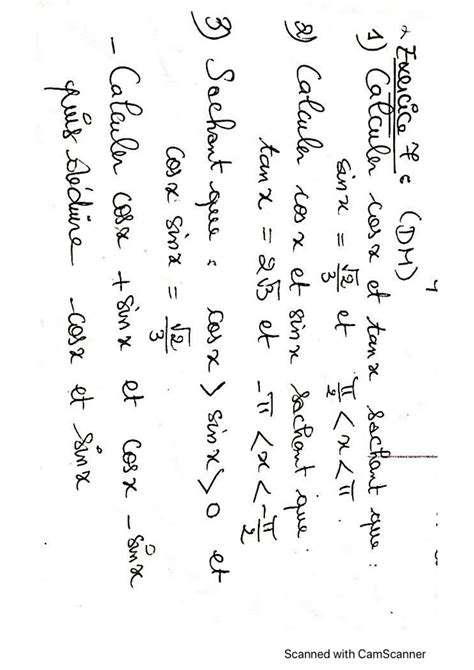 Exercice 7 : (DM)
1) Calculer cos x et tan x sachant que :
sin x = √2/3 et π/2 < x < π.
2) Calculer cos x et sin x sachant que
tan x = 2√3 et -π < x < -π/2
3) Sachant que : cos x > sin x > 0 et
cos x sin x = √2/3
- Calculer cos x + sin x et cos x - sin x
puis déduire - cos x et sin x
Scanned with CamScanner